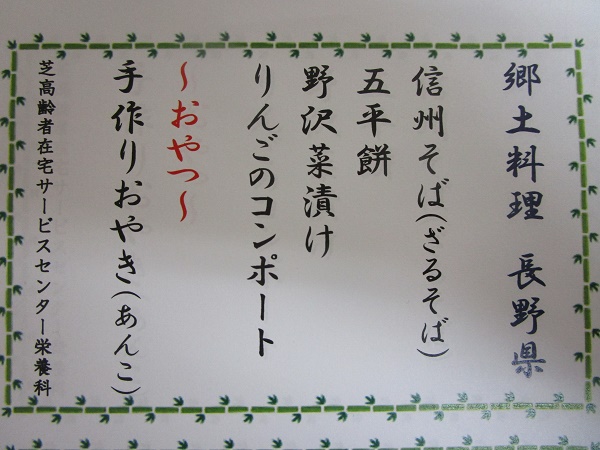 郷土料理 長野県
信州そば(ざるそば)
五平餅
野沢菜漬け
りんごのコンポート
～おやつ～
手作りおやき(あんこ)
芝高齢者在宅サービスセンター栄養科